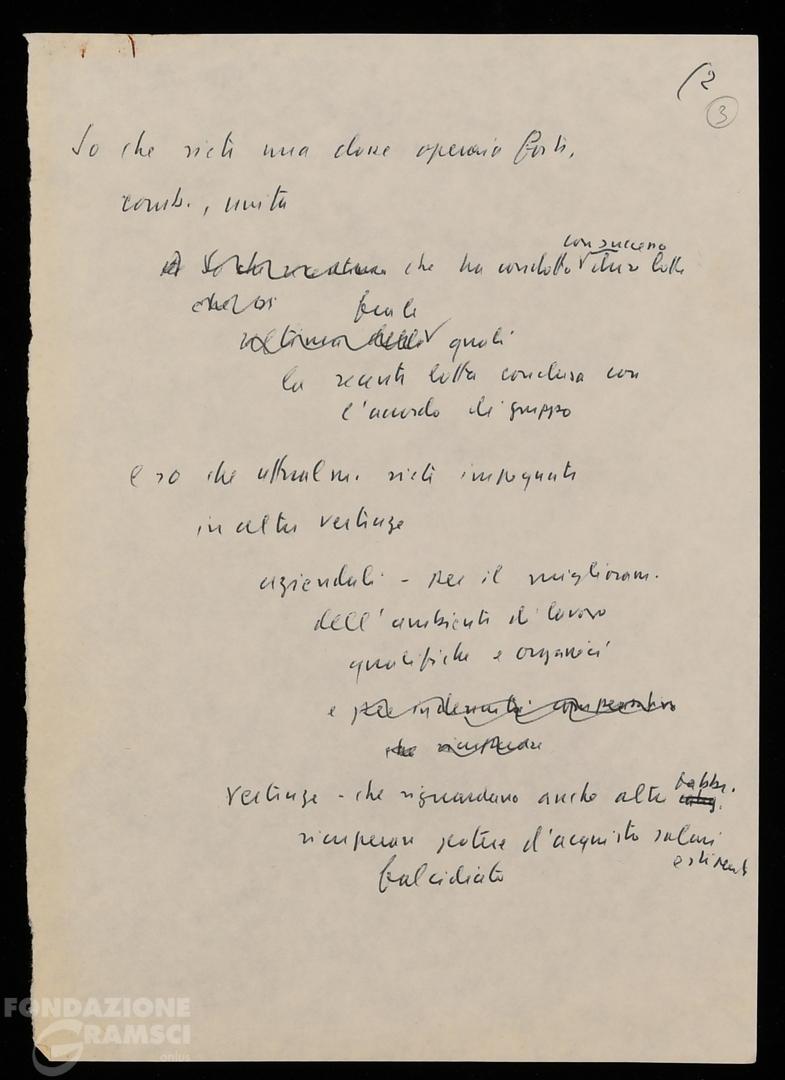 (2
3
So che siete una classe operaia forte,
comb., unita
che ha condotto con successo dure lotte
fra le quali
la recente lotta conclusa con
l'accordo di gruppo
e so che attualm. siete impegnati
in altre vertenze
aziendali - per il miglioram.
dell'ambiente di lavoro
qualifiche e organici
e per indennità
che recuperare
vertenze - che riguardano anche altre fabbr.
recuperare potere d'acquisto salari
e stipendi
falcidiato
FONDAZIONE
GRAMSCI
onlus